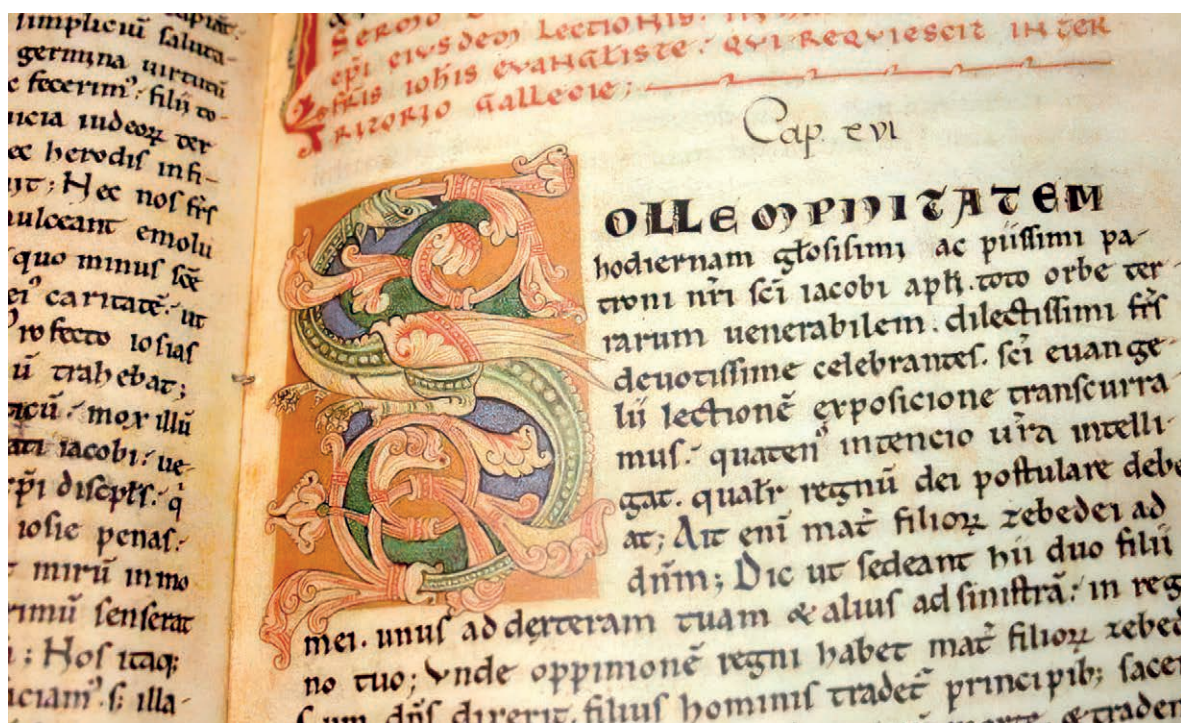 capiat:
simpliciū saluta-
germina uirtutū
c fecerim⁹: filii to-
icia iudeoꝝ ter
ec herodis infi-
Hec nos fr̄s
mulceant emolu
quo minus sc̄e
ei⁹ caritatē: ut
rofecto iosias
ū trahebat;
mox illū
ati iacobi: ue-
xp̄i discipl̄s: q̇
iosie penas:
mirū in mo
rimū senserat
; Hos itaq;
iciam⁹. s: illa-
SERMO
ep̄i eiusdem lectionis.
fr̄is ioh̄is evangeliste: qui requiescit in ter
ritorio Gallecie;
Cap. xvi
SOLLEMPNITATEM
hodiernam gl̄osisimi ac piissimi pa-
troni nr̄i sc̄i iacobi apl̄i. toto orbe ter-
rarum uenerabilem. dilectissimi fr̄s
deuotissime celebrantes. sc̄i euange-
lii lectionē exposicione transcurra-
mus: quaten⁹ intencio ur̄a intelli-
gat. qualr̄ regnū dei postulare debe
at; Ait eni mat̄ filioꝝ zebedei ad
dn̄m; Dic ut sedeant hii duo filii
mei. unus ad dexteram tuam & alius ad sinistrā: in reg
no tuo; Vnde oppinionē regni habet mat̄ filioꝝ zebed
dn̄s dixerit. filius hominis tradet̄ principib; sacer
morte & traden